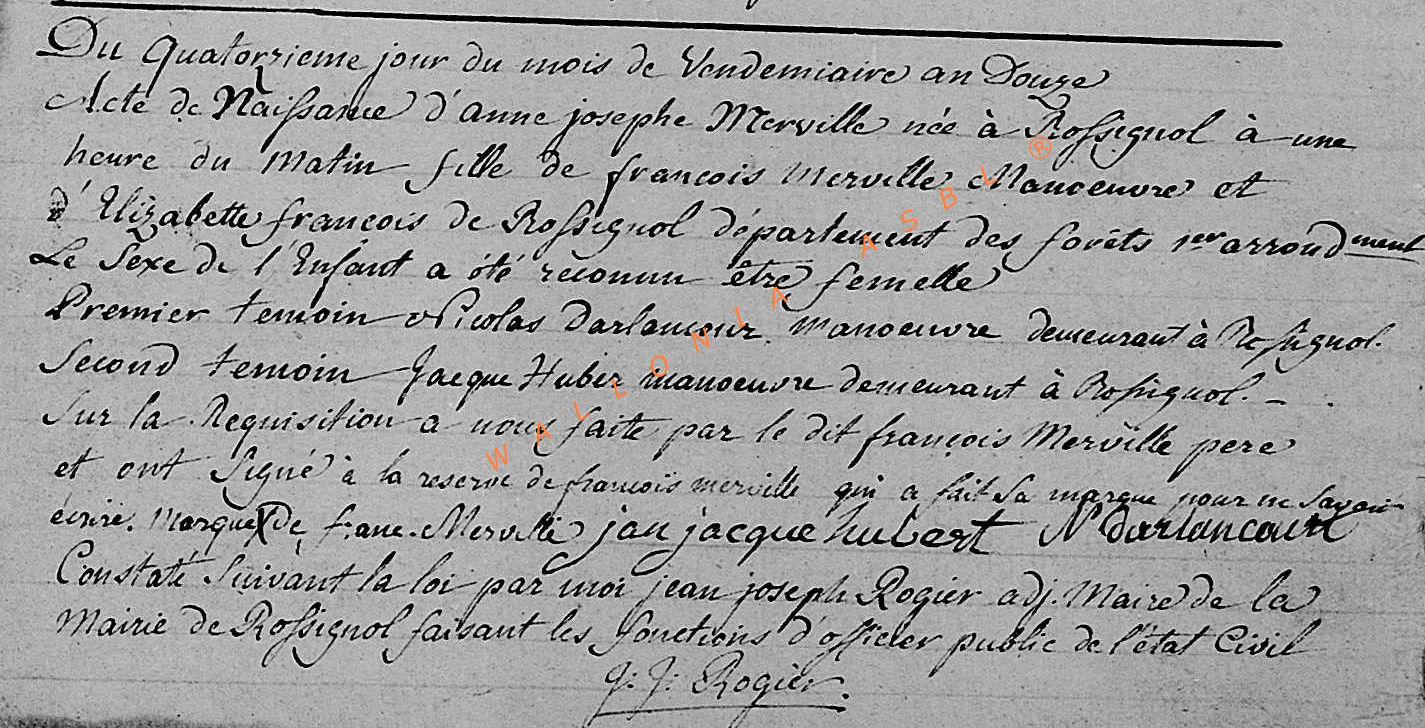 Du Quatorzieme jour du mois de Vendemiaire an Douze
Acte de Naissance d'anne josephe Merville née à Rossignol à une
heure du Matin fille de françois Merville Manoeuvre et
d'Elizabette françois de Rossignol département des forêts 1er arrondment
Le Sexe de l'Enfant a été reconnu être femelle
Premier temoin Nicolas Darlancour manoeuvre demeurant à Rossignol.
Second temoin Jacque Huber manoeuvre demeurant à Rossignol. -
Sur la Requisition a nous faite par le dit françois Merville pere
et ont signé à la reserve de françois merville qui a fait sa marque pour ne savoir
écrire. Marque X de franc. Merville jan jacque hubert N darlancour
Constaté suivant la loi par moi jean joseph Rogier adj. Maire de la
Mairie de Rossignol faisant les fonctions d'officier public de l'état Civil
J: J: Rogier.
WALLONIA ASBL ®